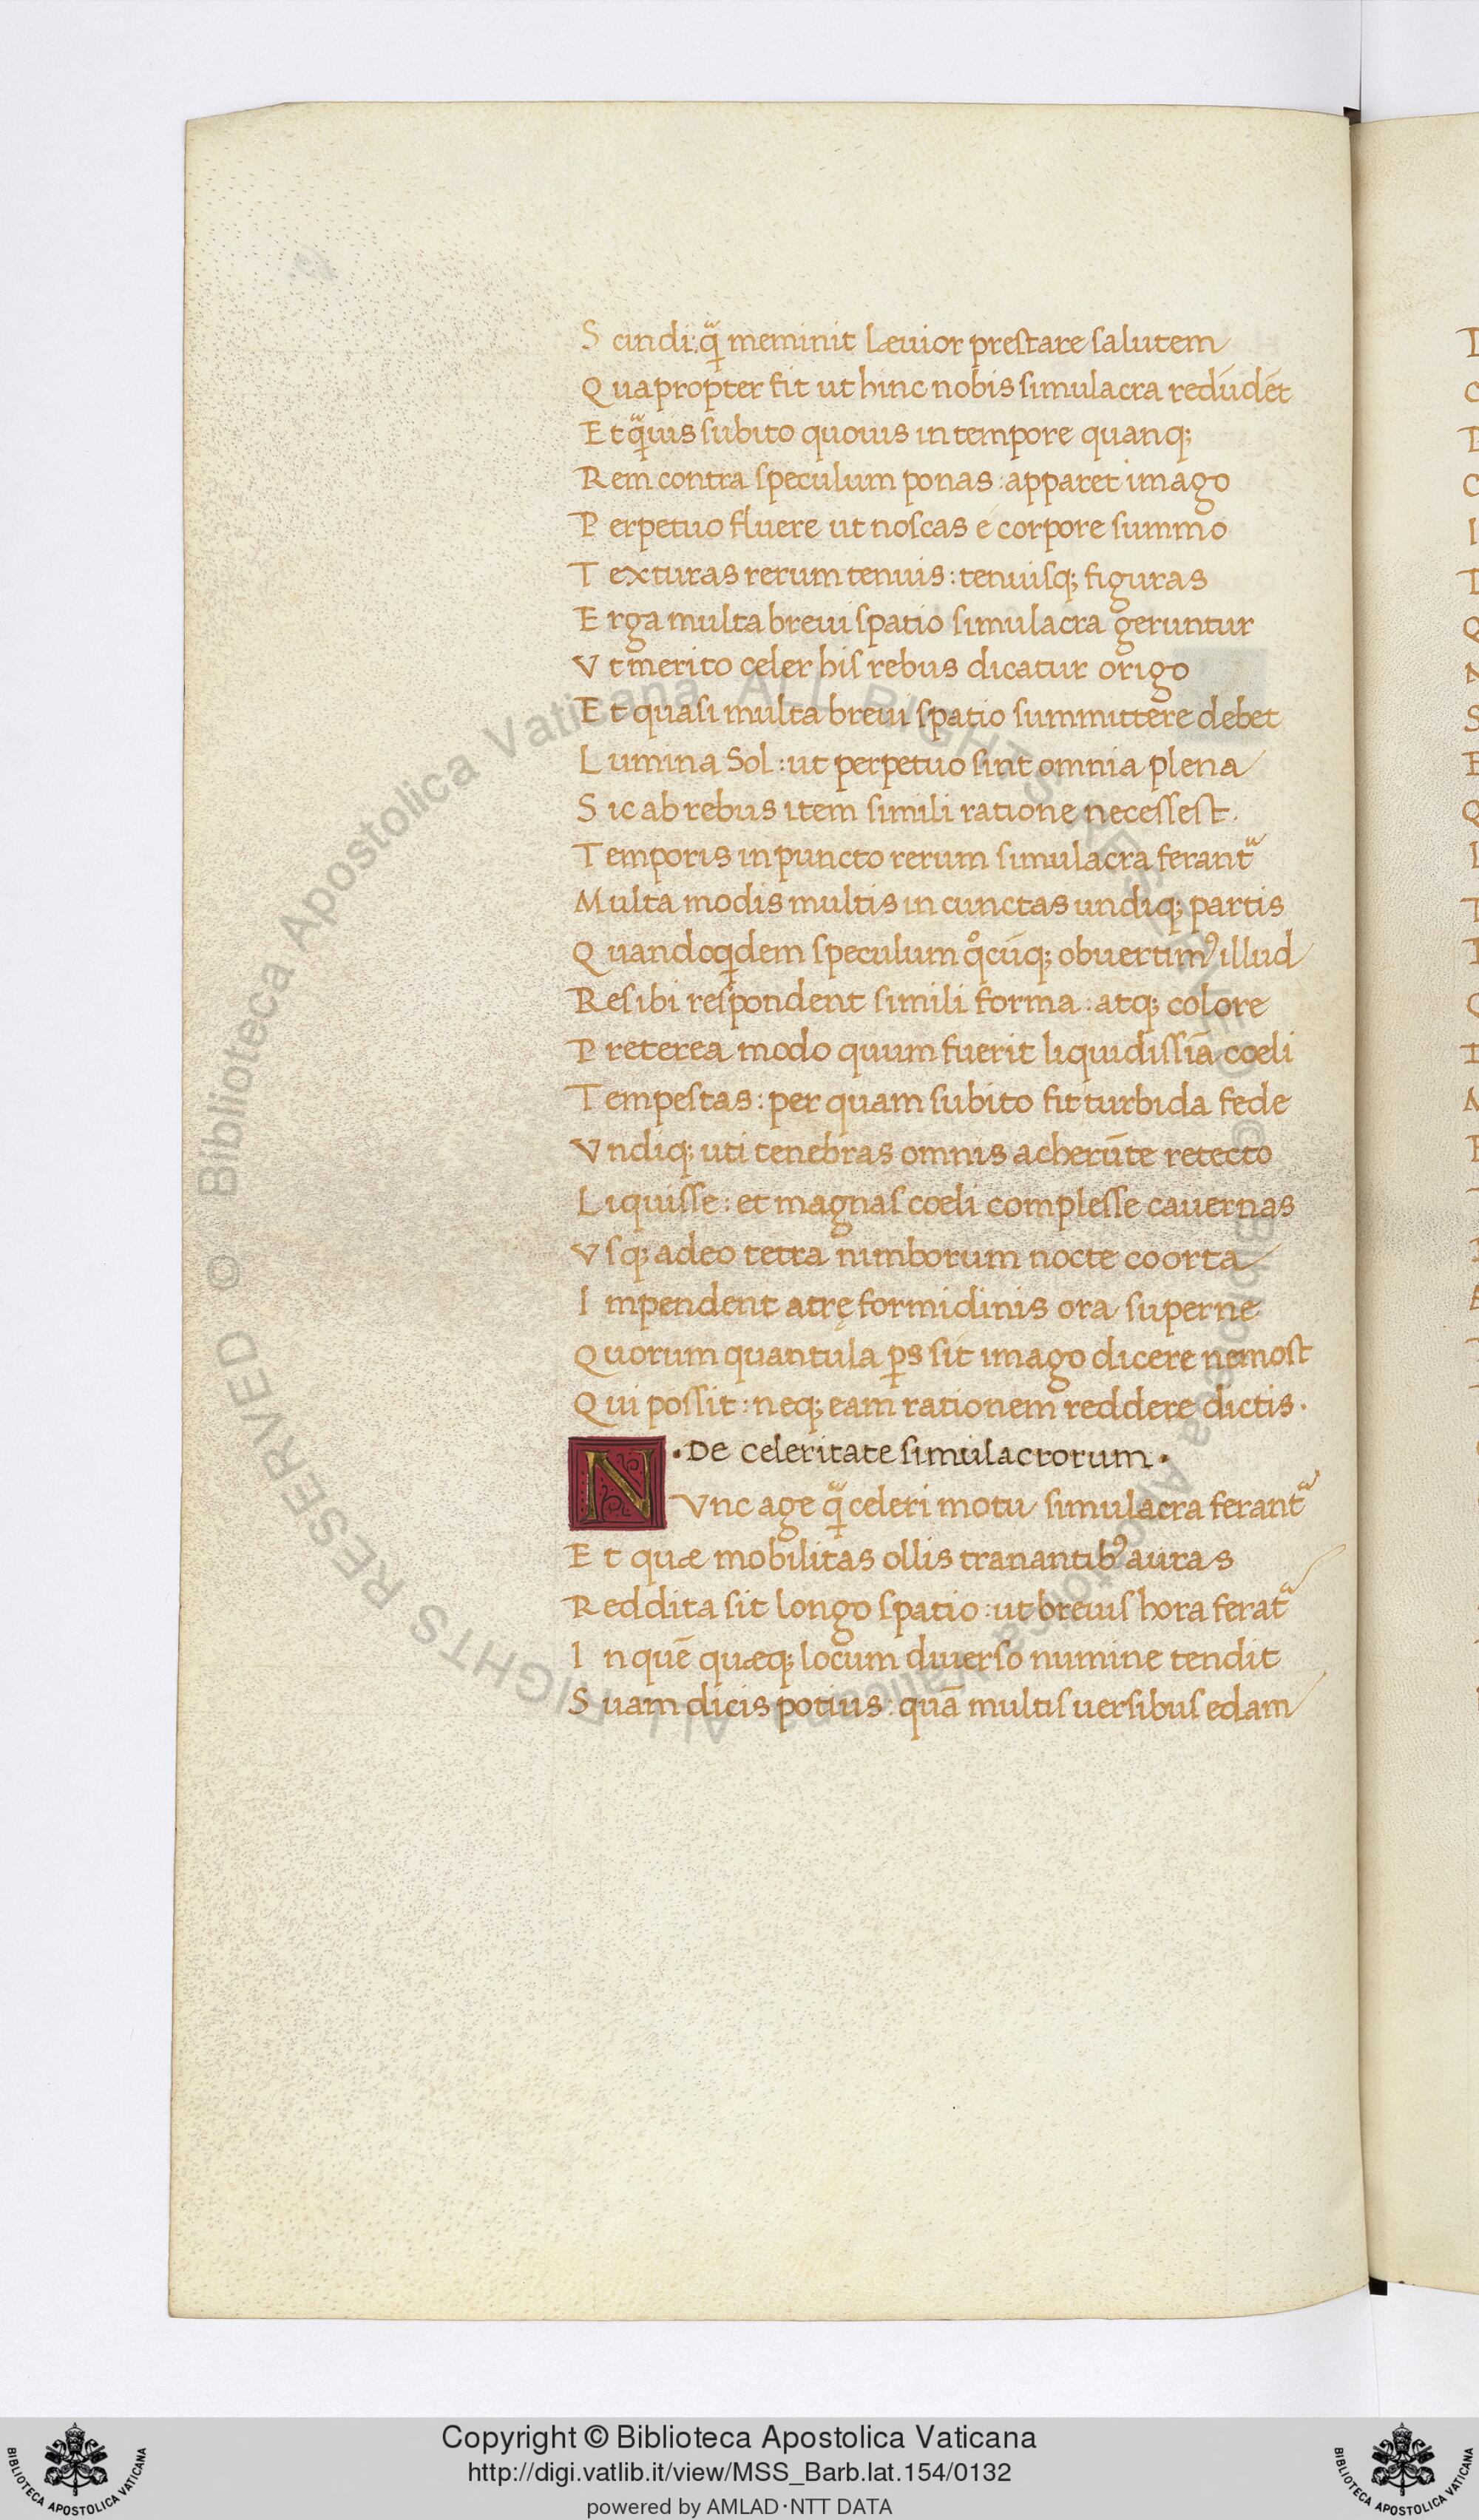 S cindi: q̃ meminit Leuior prestare salutem
Q uapropter fit ut hinc nobis simulacra redūdēt
E t q̃uis subito quouis in tempore quanq;
R em contra speculum ponas : apparet imago
P erpetuo fluere ut noscas é corpore summo
T exturas rerum tenuis : tenuisq; figuras
E rga multa breui spatio simulacra geruntur
V t merito celer his rebus dicatur origo
E t quasi multa breui spatio summittere debet
L umina Sol : ut perpetuo sint omnia plena
S ic ab rebus item simili ratione necessest.
T emporis in puncto rerum simulacra ferant᷑
M ulta modis multis in cunctas undiq; partis
Q uandoqdem speculum q̊cūq; obuertimꝰ illud
R e sibi respondent simili forma : atq; colore
P reterea modo quum fuerit liquidissīa coeli
T empestas : per quam subito fit turbida fede
V ndiq; uti tenebras omnis acherūte retecto
L iquisse : et magnas coeli complesse cauernas
V sq; adeo tetra nimborum nocte coorta
I mpendent atrę formidinis ora superne
Q uorum quantula ꝑs sit imago dicere nemost
Q ui possit : neq; eam rationem reddere dictis.
·De celeritate simulacrorum·
N Vnc age q̃ celeri motu simulacra ferant᷑
E t quæ mobilitas ollis tranantibꝰ auras
R eddita sit longo spatio : ut breuis hora ferat᷑
I n quē quæq; locum diuerso numine tendit
S uam dicis potius : quā multis uersibus edam
© Biblioteca Apostolica Vaticana ALL RIGHTS RESERVED
© Biblioteca Apostolica Vaticana ALL RIGHTS RESERVED
Copyright © Biblioteca Apostolica Vaticana
http://digi.vatlib.it/view/MSS_Barb.lat.154/0132
powered by AMLAD·NTT DATA
BIBLIOTECA APOSTOLICA VATICANA
BIBLIOTECA APOSTOLICA VATICANA